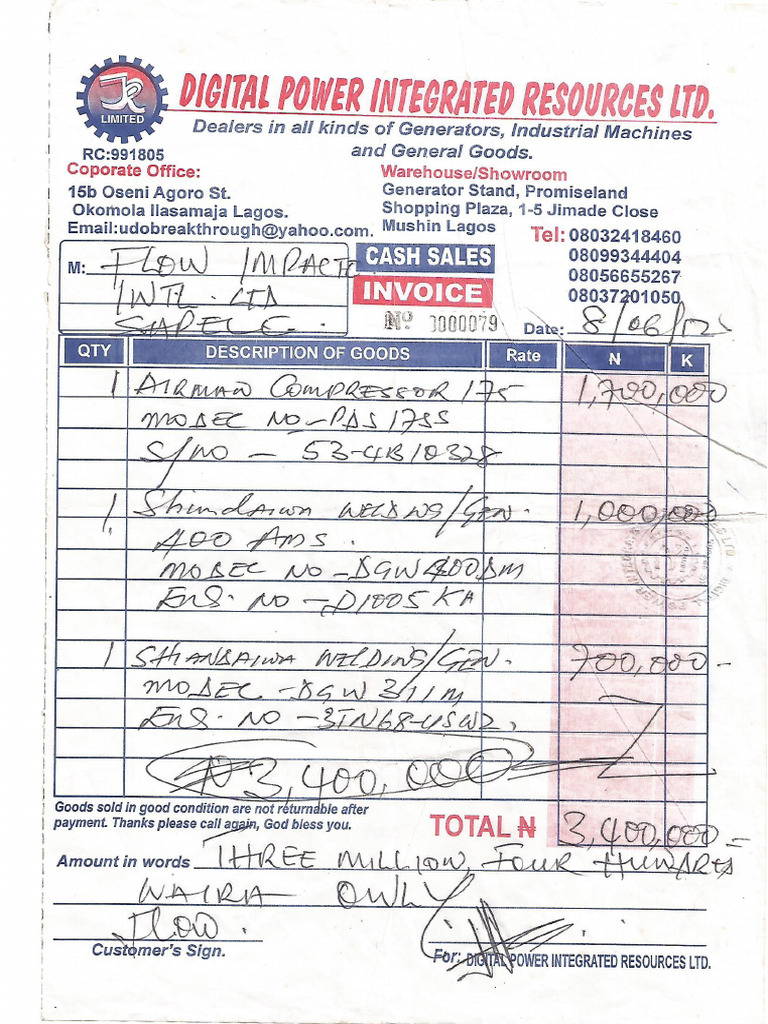 JR
LIMITED
DIGITAL POWER INTEGRATED RESOURCES LTD.
Dealers in all kinds of Generators, Industrial Machines
and General Goods.
RC:991805
Coporate Office:
15b Oseni Agoro St.
Okomola Ilasamaja Lagos.
Email:udobreakthrough@yahoo.com.
Warehouse/Showroom
Generator Stand, Promiseland
Shopping Plaza, 1-5 Jimade Close
Mushin Lagos
Tel: 08032418460
08099344404
08056655267
08037201050
M: FLOW IMPACTE
INTL. LTD
SAPELE.
CASH SALES
INVOICE
Nº 0000079
Date: 8/06/12
QTY DESCRIPTION OF GOODS Rate N K
1 AIRMAN COMPRESSOR 175 1,700,000
MODEL NO - PDS 175S
S/NO - 53-4B10328
1 Shindaiwa WELDING/GEN. 1,000,000
400 AMS.
MODEL NO - DGW400DM
ENG. NO - D1005 KA
1 SHIANDAIWA WELDING/GEN. 700,000 -
MODEL - DGW 311M
ENG. NO - 3TN68-USW2.
₦3,400,000
Goods sold in good condition are not returnable after
payment. Thanks please call again, God bless you.
TOTAL ₦ 3,400,000 =
Amount in words THREE MILLION, FOUR HUNDRED
NAIRA ONLY
FLOW.
Customer's Sign.
For: DIGITAL POWER INTEGRATED RESOURCES LTD.